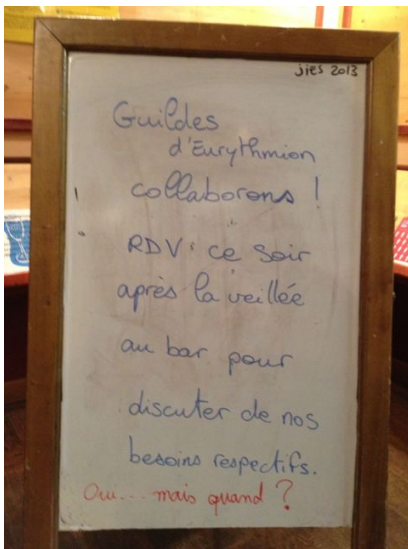 jies 2013
Guildes
d'Eurythmion
collaborons !
RDV : ce soir
après la veillée
au bar pour
discuter de nos
besoins respectifs.
Oui... mais quand ?